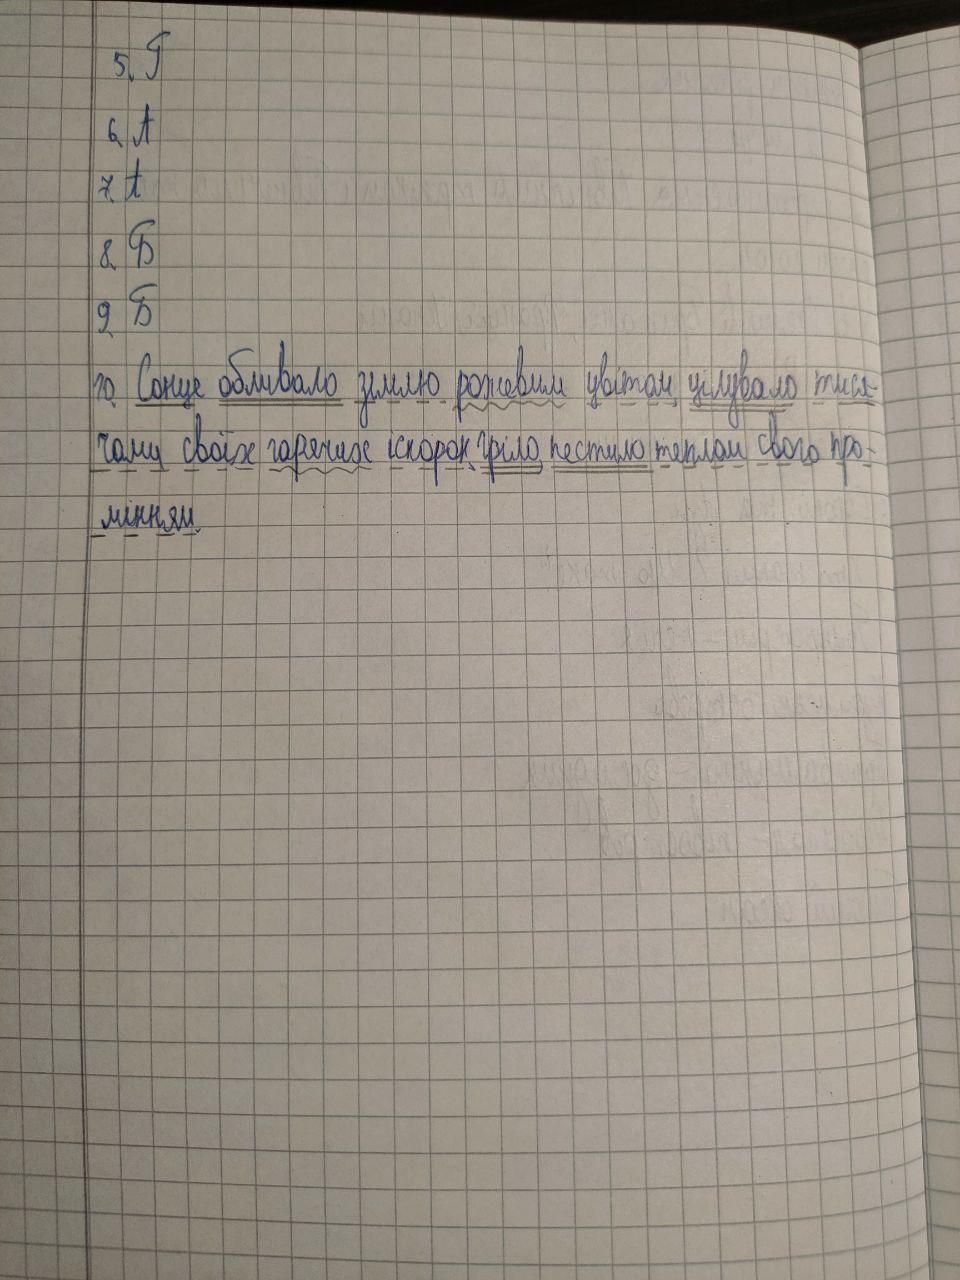 5. Г
6. А
7. А
8. Б
9. Б
10. Сонце обливало землю рожевим цвітом, цілувало тися-
чами своїх гарячих іскорок, гріло, пестило теплом свого про-
мінням.